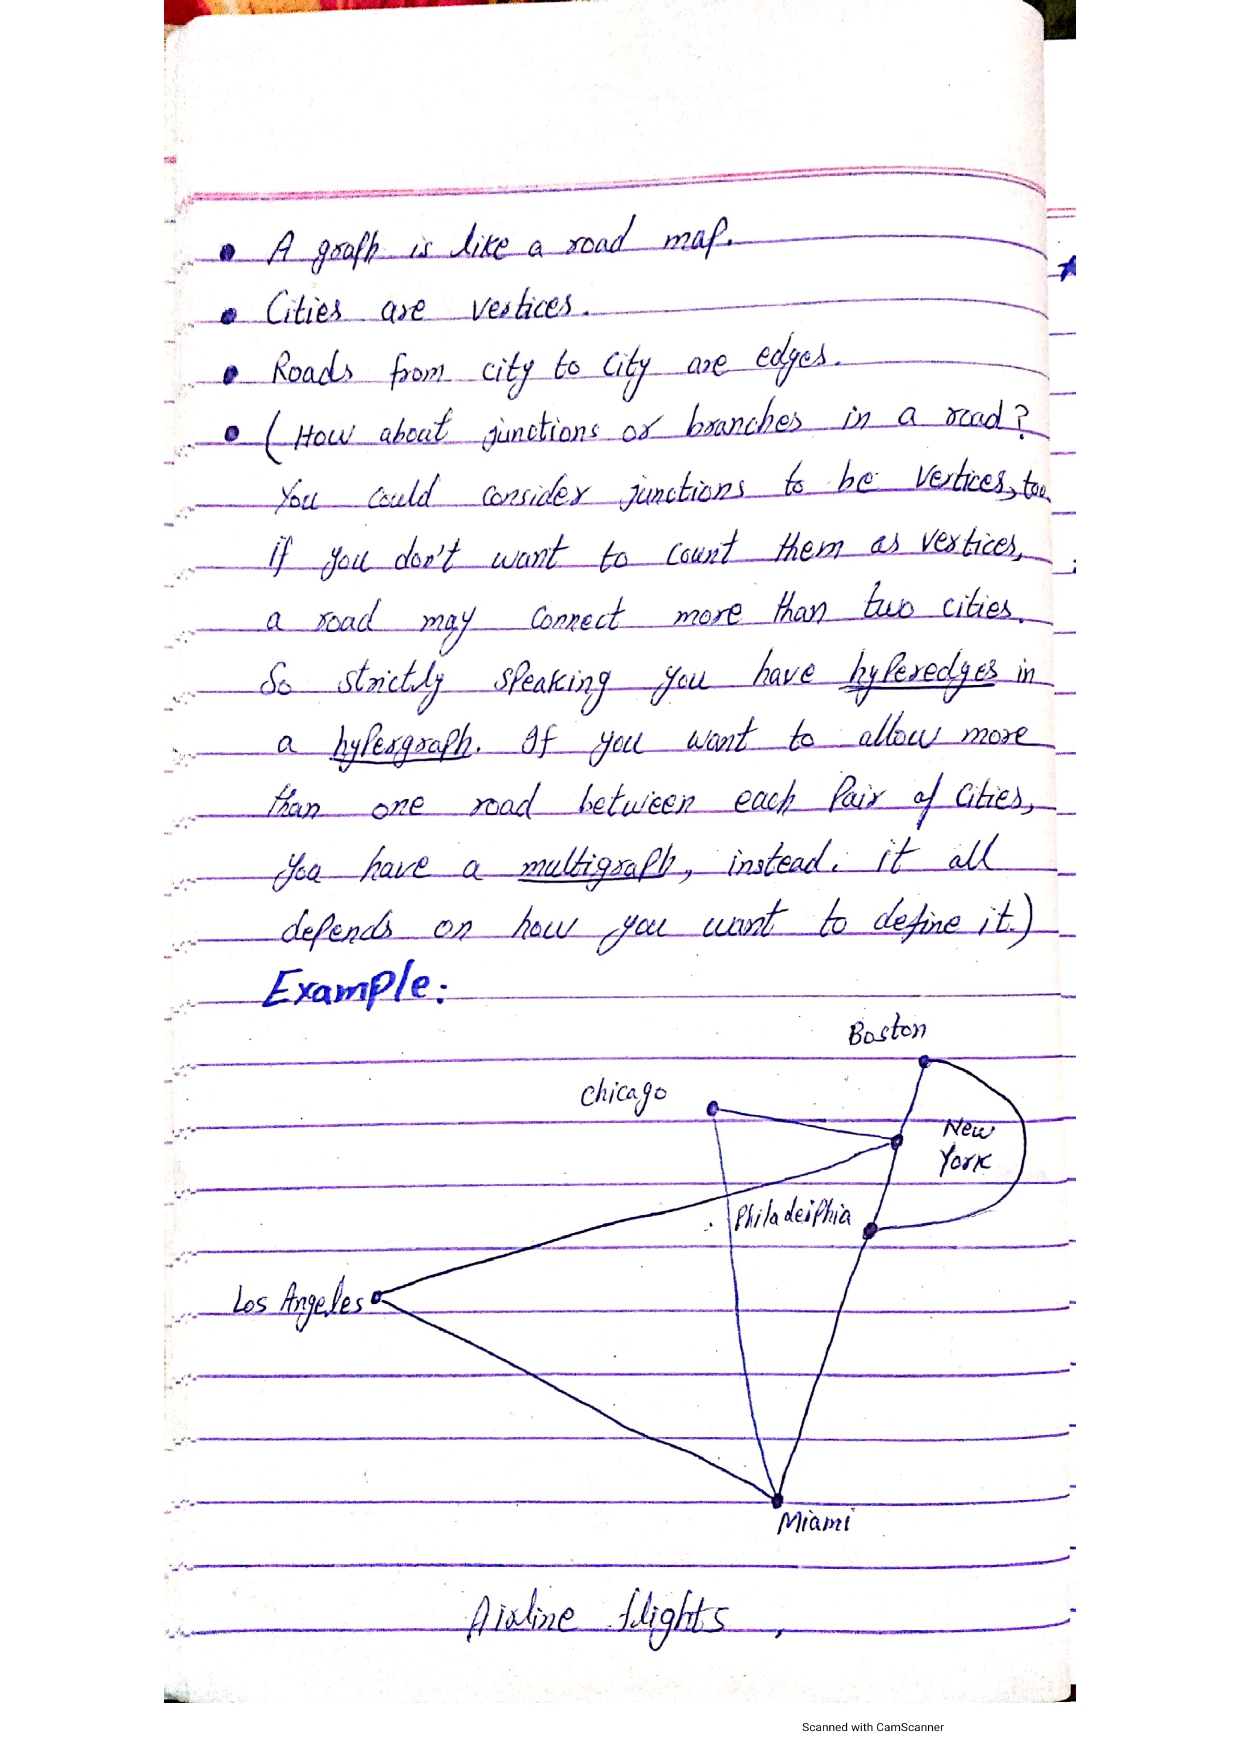 • A graph is like a road map.
• Cities are vertices.
• Roads from city to city are edges.
• (How about junctions or branches in a road?
You could consider junctions to be vertices, too.
if you don't want to count them as vertices,
a road may connect more than two cities.
So strictly speaking you have hyperedges in
a hypergraph. If you want to allow more
than one road between each pair of cities,
you have a multigraph, instead. it all
depends on how you want to define it.)
Example:
Boston
Chicago
New
York
Philadeiphia
Los Angeles
Miami
Airline flights,
Scanned with CamScanner